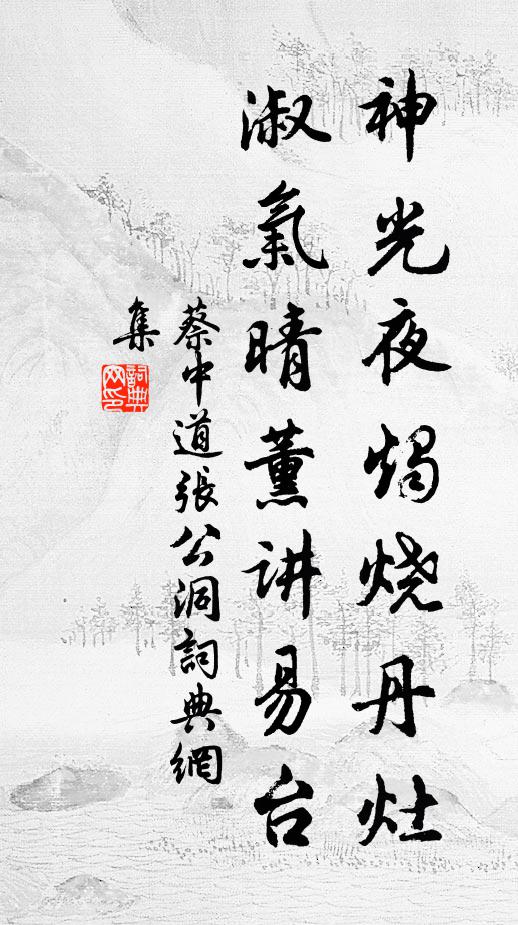 神光夜烛烧丹灶
淑氣晴薰讲易台
蔡中道張公洞詞典網
集
詞典
网印